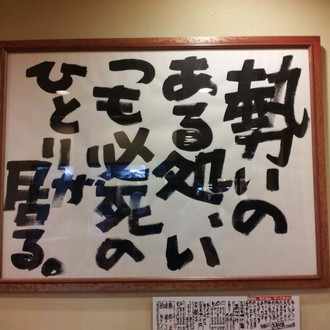 勢いの
ある処、い
つも必死の
ひとりが
居る。